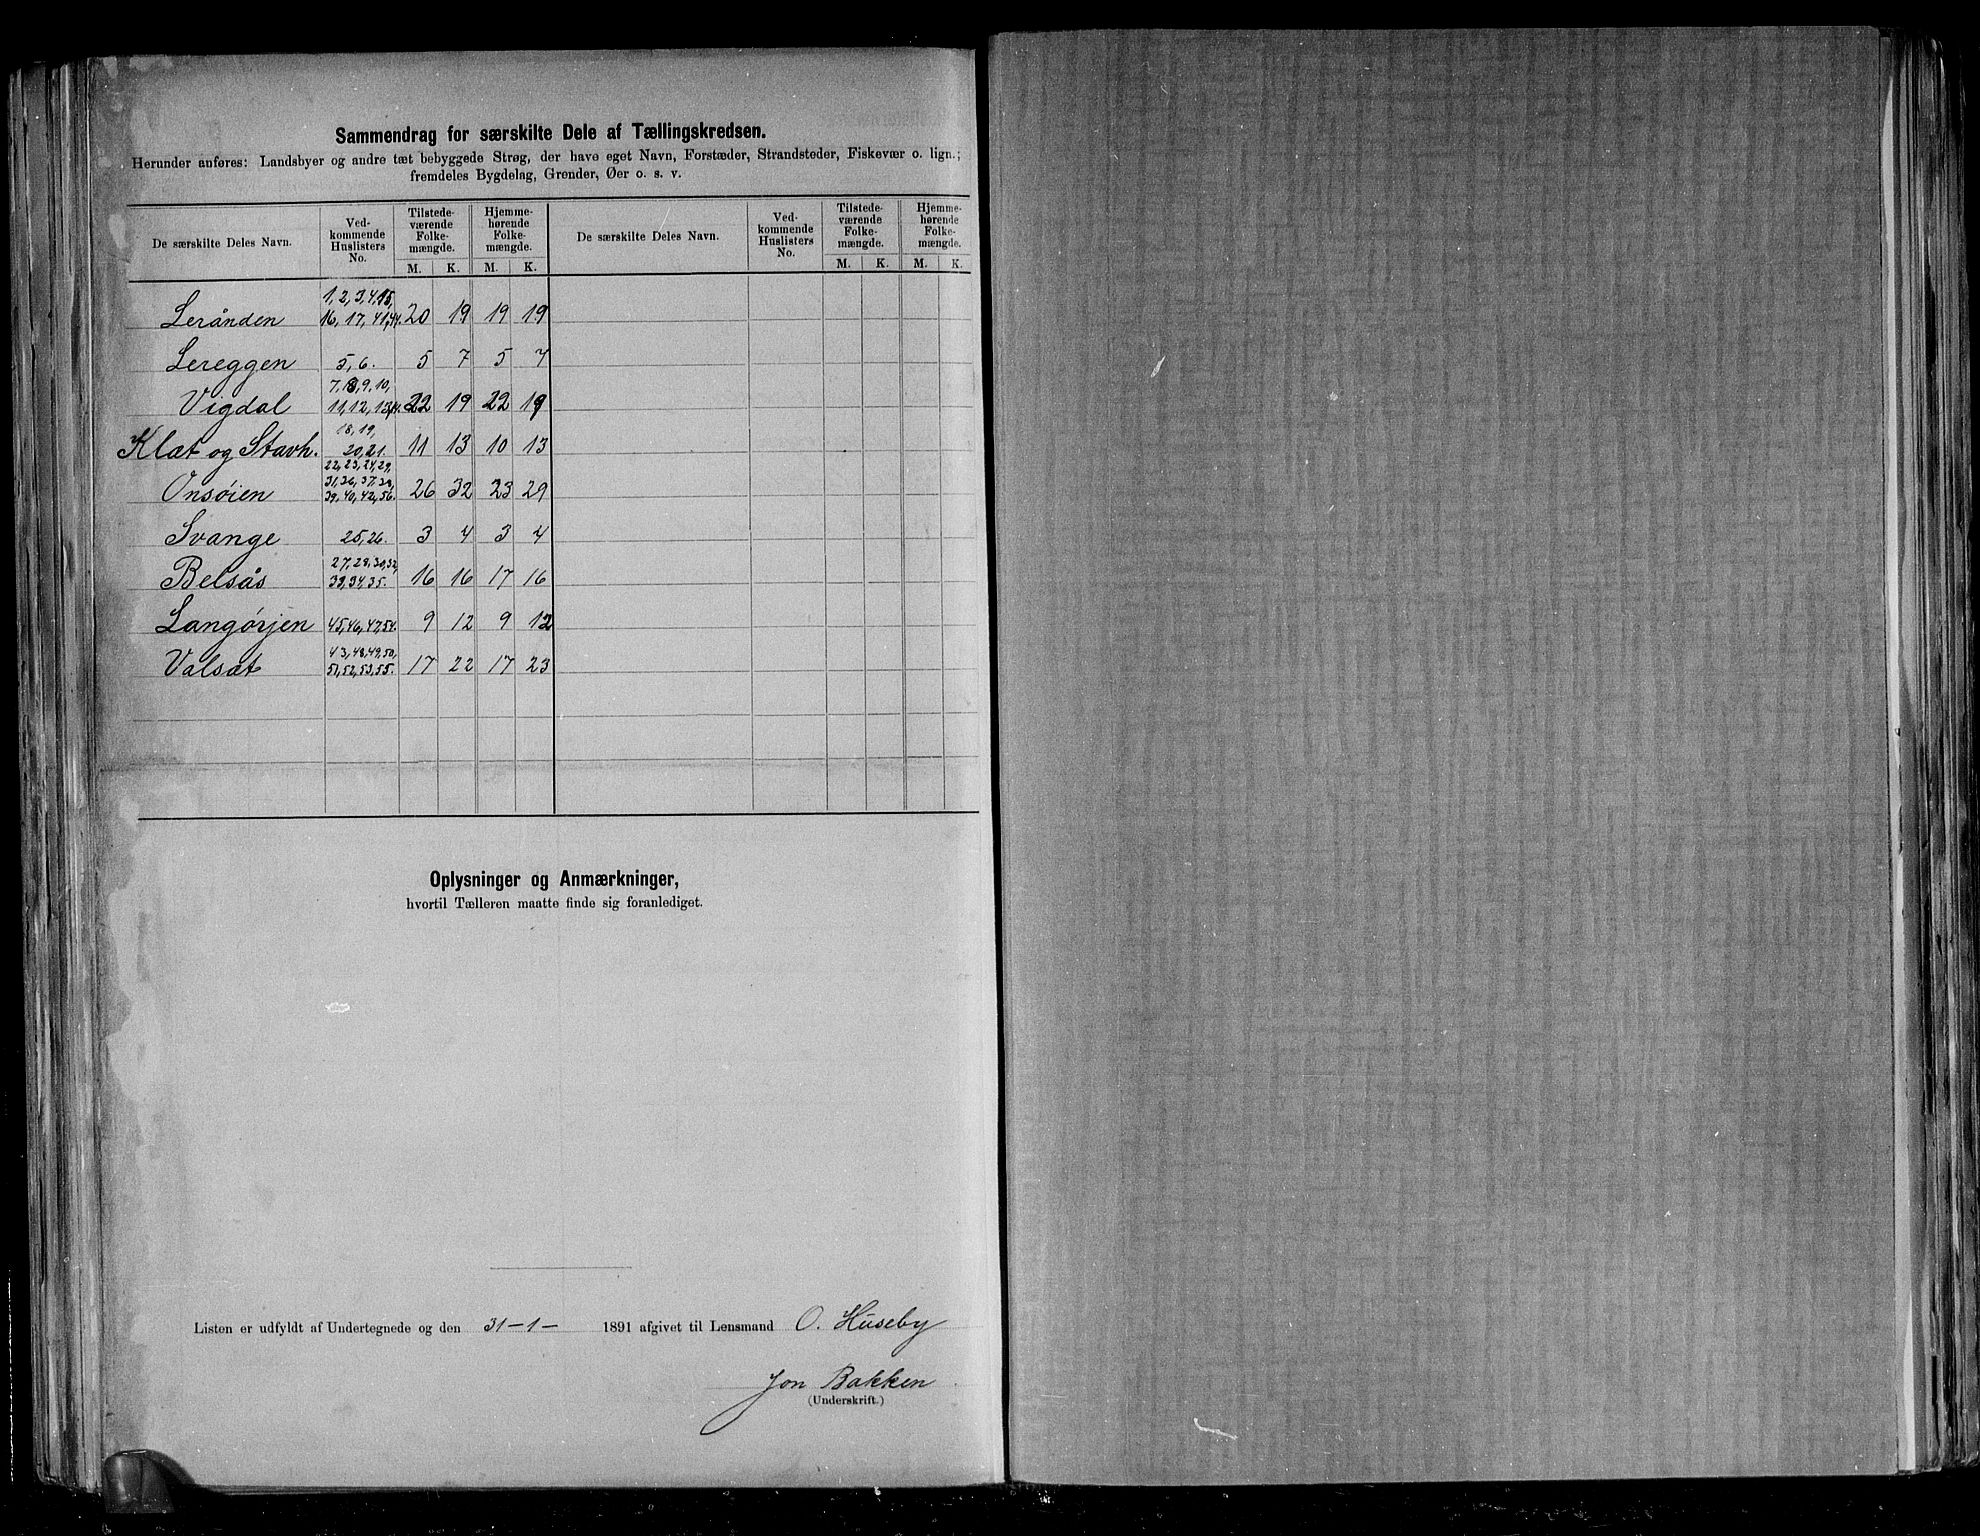 Sammendrag for særskilte Dele af Tællingskredsen.
Herunder anføres: Landsbyer og andre tæt bebyggede Strøg, der have eget Navn, Forstæder, Strandsteder, Fiskevær o. lign.;
fremdeles Bygdelag, Grender, Øer o. s. v.
De særskilte Deles Navn. Ved-kommende Huslisters No. Tilstede-værende Folke-mængde. Hjemme-hørende Folke-mængde. De særskilte Deles Navn. Ved-kommende Huslisters No. Tilstede-værende Folke-mængde. Hjemme-hørende Folke-mængde.
M. K. M. K. M. K. M. K.
1, 2, 3, 4, 15,
Lerånden 16, 17, 41, 44. 20 19 19 19
Lereggen 5, 6. 5 7 5 7
7, 8, 9, 10,
Vigdal 11, 12, 13, 14. 22 19 22 19
18, 19,
Klæt og Stavh. 20, 21. 11 13 10 13
22, 23, 24, 29,
31, 36, 37, 38,
Onsøien 39, 40, 42, 56. 26 32 23 29
Svange 25, 26. 3 4 3 4
27, 28, 30, 32,
Belsås 33, 34, 35. 16 16 17 16
Langørjen 45, 46, 47, 54. 9 12 9 12
43, 48, 49, 50,
Valsæt 51, 52, 53, 55. 17 22 17 23
Oplysninger og Anmærkninger,
hvortil Tælleren maatte finde sig foranlediget.
Listen er udfyldt af Undertegnede og den 31-1- 1891 afgivet til Lensmand O. Huseby
Jon Bakken
(Underskrift.)